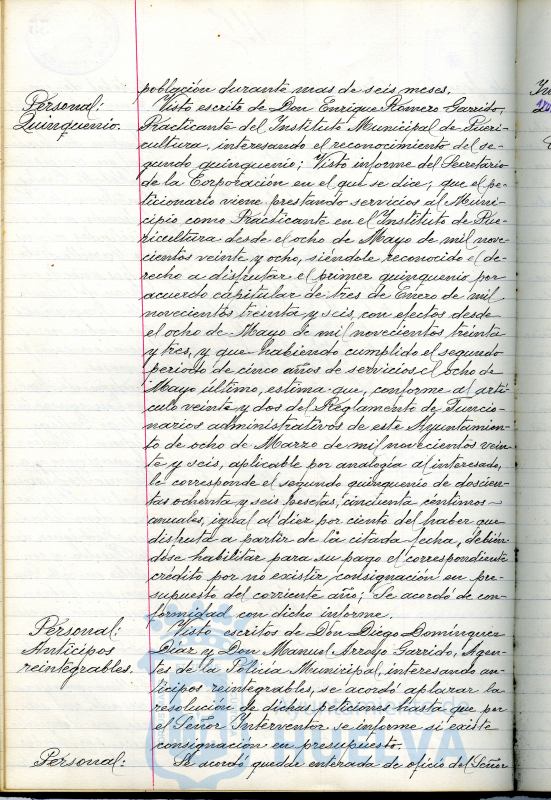 población durante mas de seis meses.
Personal:
Quinquenio.
Visto escrito de Don Enrique Romero Garrido,
Practicante del Instituto Municipal de Pueri-
cultura, interesando el reconocimiento del se-
gundo quinquenio; Visto informe del Secretario
de la Corporación en el que se dice; que el pe-
ticionario viene prestando servicios al Muni-
cipio como Practicante en el Instituto de Pue-
ricultura desde el ocho de Mayo de mil nove-
cientos veinte y ocho, siéndole reconocido el de-
recho a disfrutar el primer quinquenio por
acuerdo capitular de tres de Enero de mil
novecientos treinta y seis, con efectos desde
el ocho de Mayo de mil novecientos treinta
y tres, y que habiendo cumplido el segundo
periodo de cinco años de servicios, el ocho de
Mayo último, estima que, conforme al artí-
culo veinte y dos del Reglamento de Funcio-
narios administrativos de este Ayuntamien-
to de ocho de Marzo de mil novecientos vein-
te y seis, aplicable por analogía al interesado,
le corresponde el segundo quinquenio de doscien-
tas ochenta y seis pesetas, cincuenta céntimos
anuales, igual al diez por ciento del haber que
disfruta a partir de la citada fecha, debién-
dose habilitar para su pago el correspondiente
crédito por no existir consignación en pre-
supuesto del corriente año; Se acordó de con-
formidad con dicho informe.
Personal:
Anticipos
reintegrables.
Visto escritos de Don Diego Domínguez
Díaz y Don Manuel Arroyo Garrido, Agen-
tes de la Policía Municipal, interesando an-
ticipos reintegrables, se acordó aplazar la
resolución de dichas peticiones hasta que por
el Señor Interventor se informe si existe
consignación en presupuesto.
Personal:
Se acordó quedar enterada de oficio del Señor